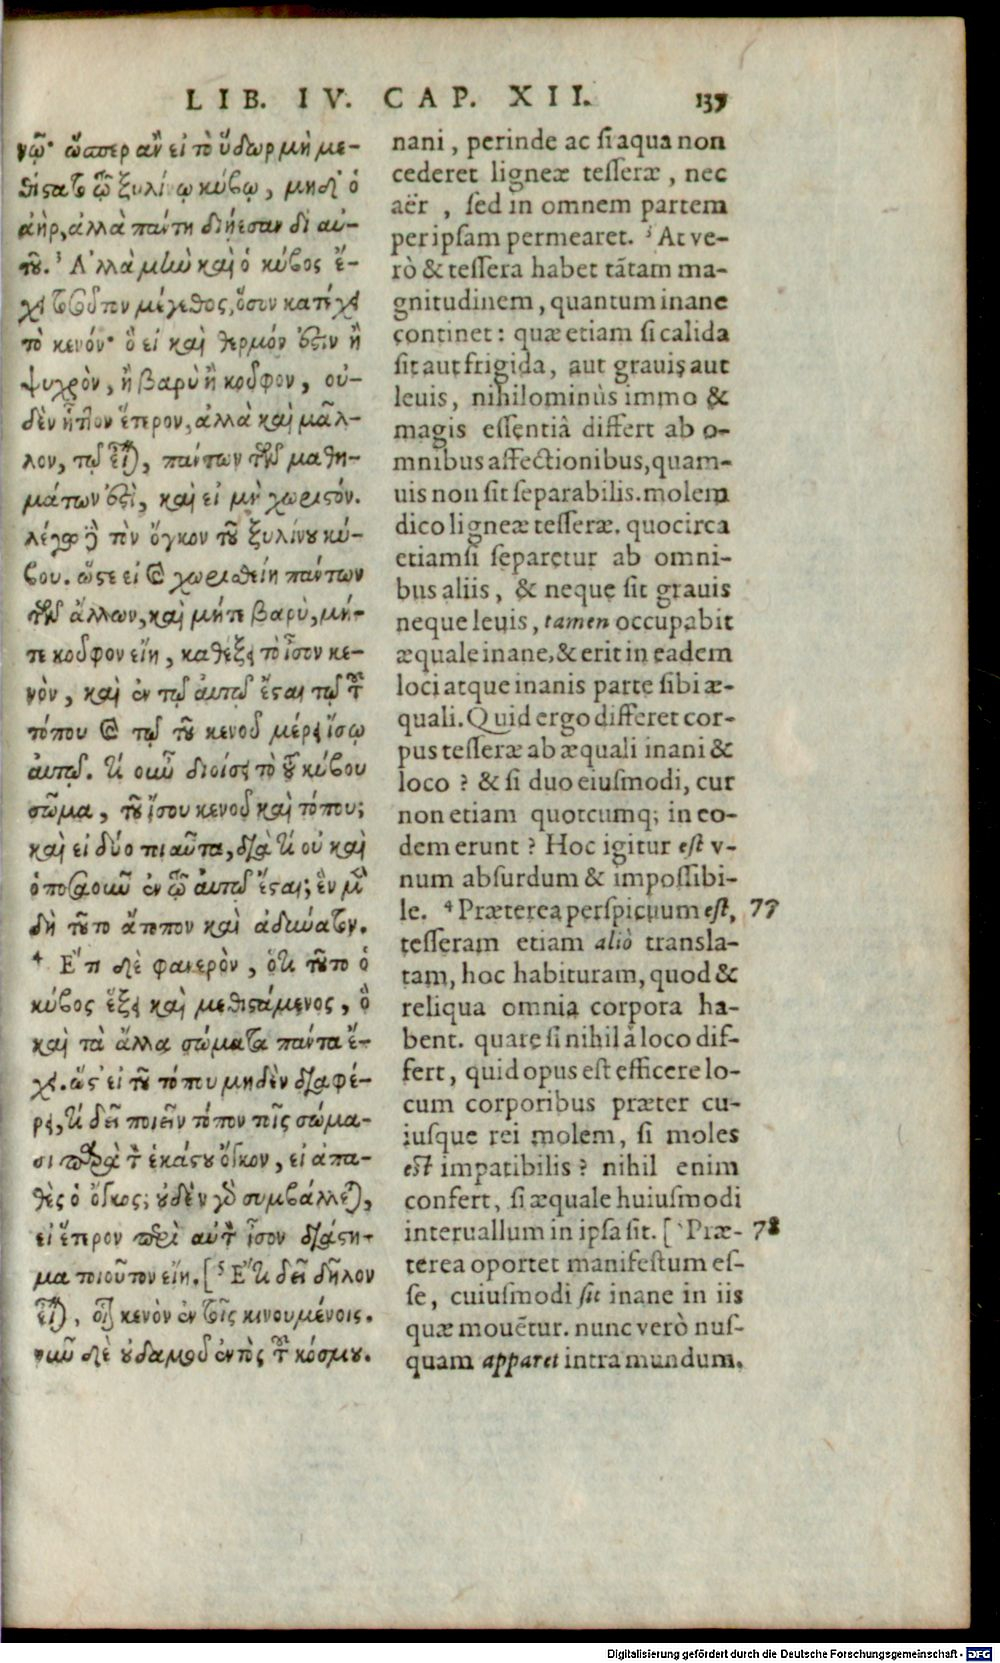 LIB. IV. CAP. XII. 137
νῷ· ὥσπερ ἂν εἰ τὸ ὕδωρ μὴ με-
θίσατο τῷ ξυλίνῳ κύβῳ, μηδ' ὁ
ἀὴρ, ἀλλὰ πάντη διῄεσαν δι αὐ-
τοῦ. ³ Ἀλλὰ μὴν καὶ ὁ κύβος ἔ-
χει τοσοῦτον μέγεθος, ὅσον κατέχει
τὸ κενόν· ὃ εἰ καὶ θερμόν ἐστιν ἢ
ψυχρὸν, ἢ βαρὺ ἢ κοῦφον, οὐ-
δὲν ἧττον ἕτερον, ἀλλὰ καὶ μᾶλ-
λον, τῷ εἶναι, πάντων τῶν παθη-
μάτων ἐστὶ, καὶ εἰ μὴ χωριστόν.
λέγω δὲ τὸν ὄγκον τοῦ ξυλίνου κύ-
βου. ὥστε εἰ καὶ χωρισθείη πάντων
τῶν ἄλλων, καὶ μήτε βαρὺ, μή-
τε κοῦφον εἴη, καθέξει τὸ ἴσον κε-
νὸν, καὶ ἐν τῷ αὐτῷ ἔσται τῷ τοῦ
τόπου καὶ τῷ τοῦ κενοῦ μέρει ἴσῳ
αὐτῷ. τί οὖν διοίσει τὸ τοῦ κύβου
σῶμα, τοῦ ἴσου κενοῦ καὶ τόπου;
καὶ εἰ δύο τοιαῦτα, διὰ τί οὐ καὶ
ὁποσαοῦν ἐν τῷ αὐτῷ ἔσται; ἓν μὲν
δὴ τοῦτο ἄτοπον καὶ ἀδύνατον.
⁴ Ἔτι δὲ φανερὸν, ὅτι τοῦτο ὁ
κύβος ἕξει καὶ μεθιστάμενος, ὃ
καὶ τὰ ἄλλα σώματα πάντα ἔ-
χει. ὥστ' εἰ τοῦ τόπου μηδὲν διαφέ-
ρει, τί δεῖ ποιεῖν τόπον τοῖς σώμα-
σι παρὰ τὸν ἑκάστου ὄγκον, εἰ ἀπα-
θὲς ὁ ὄγκος; οὐδὲν γὰρ συμβάλλεται,
εἰ ἕτερον περὶ αὐτὸν ἴσον διάστη-
μα τοιοῦτον εἴη. [⁵ Ἔτι δεῖ δῆλον
εἶναι, οἷον κενὸν ἐν τοῖς κινουμένοις.
νῦν δὲ οὐδαμοῦ ἐντὸς τοῦ κόσμου.
nani, perinde ac si aqua non
cederet ligneæ tesseræ, nec
aër, sed in omnem partem
per ipsam permearet. ³ At ve-
rò & tessera habet tãtam ma-
gnitudinem, quantum inane
continet: quæ etiam si calida
sit aut frigida, aut gravis aut
leuis, nihilominùs immo &
magis essentiâ differt ab o-
mnibus affectionibus, quam-
uis non sit separabilis. molem
dico ligneæ tesseræ. quocirca
etiamsi separetur ab omni-
bus aliis, & neque sit grauis
neque leuis, tamen occupabit
æquale inane, & erit in eadem
loci atque inanis parte sibi æ-
quali. Quid ergo differet cor-
pus tesseræ ab æquali inani &
loco ? & si duo eiusmodi, cur
non etiam quotcumq; in eo-
dem erunt ? Hoc igitur est v-
num absurdum & impossibi-
le. ⁴ Præterea perspicuum est, 77
tesseram etiam aliò transla-
tam, hoc habituram, quod &
reliqua omnia corpora ha-
bent. quare si nihil à loco dif-
fert, quid opus est efficere lo-
cum corporibus præter cu-
iusque rei molem, si moles
est impatibilis ? nihil enim
confert, si æquale huiusmodi
interuallum in ipsa sit. [⁵ Præ- 78
terea oportet manifestum es-
se, cuiusmodi sit inane in iis
quæ mouẽtur. nunc verò nus-
quam apparet intra mundum.
Digitalisierung gefördert durch die Deutsche Forschungsgemeinschaft - DFG